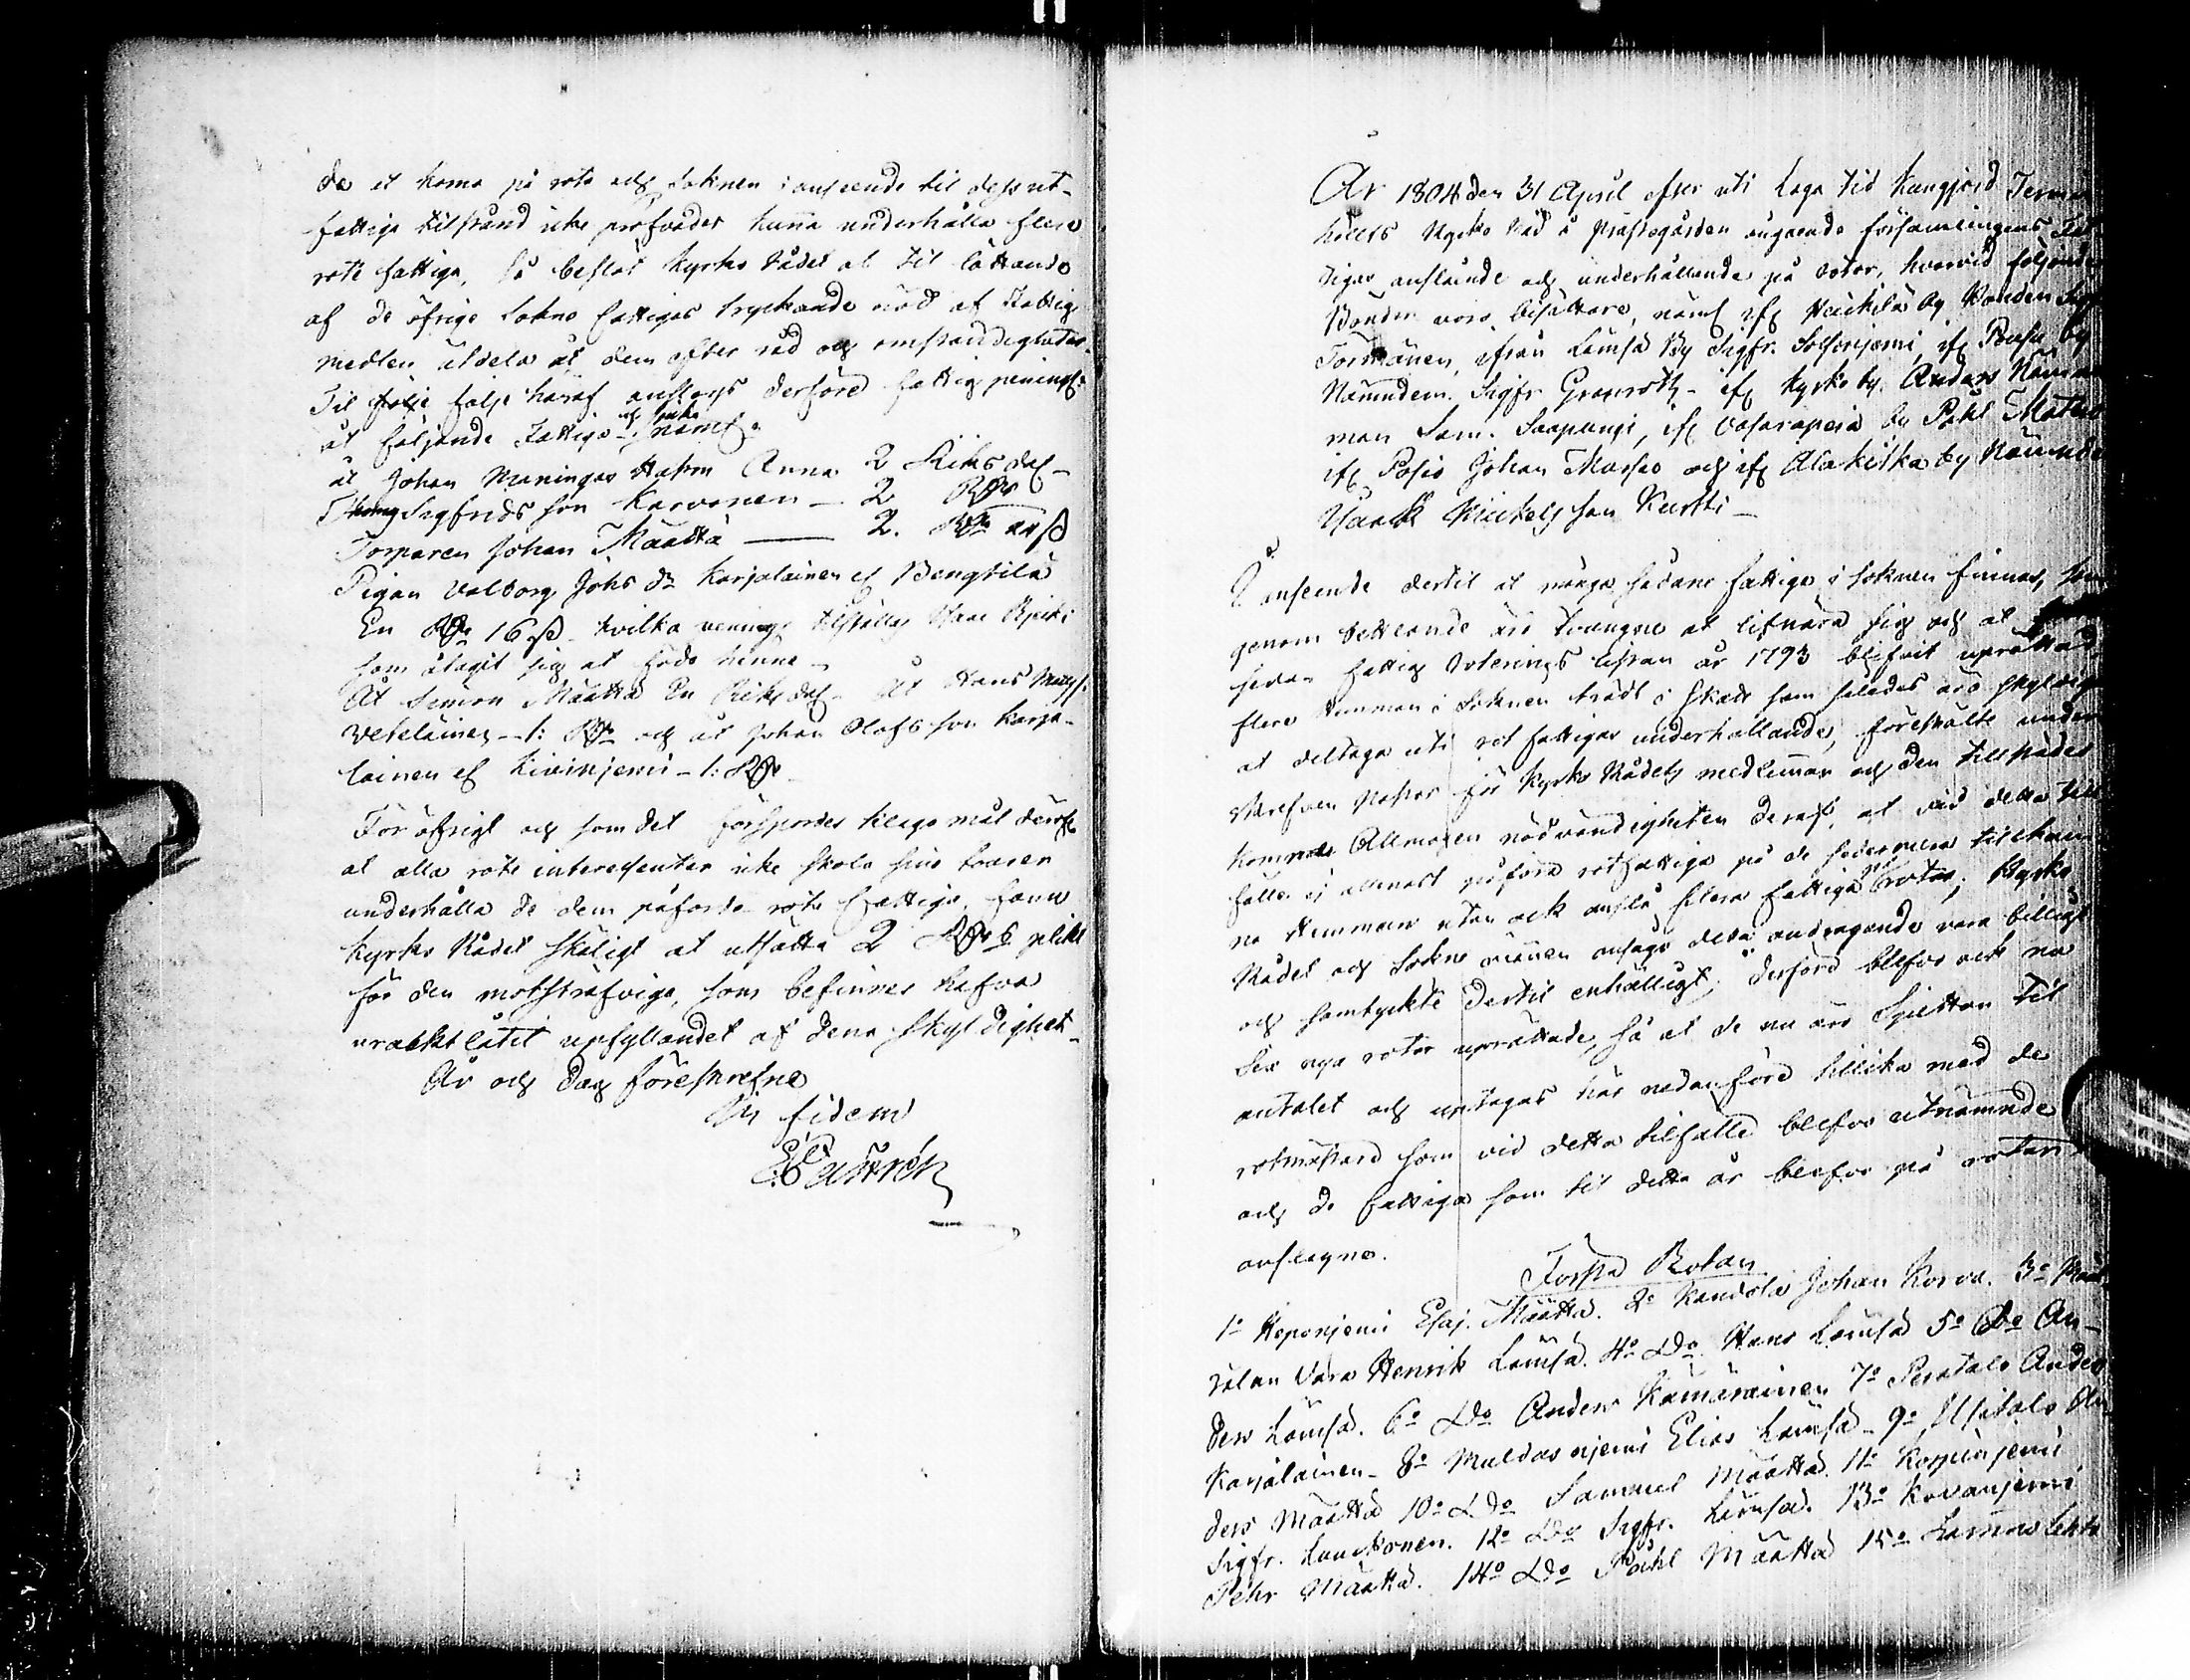 de et koma på rote och Soknen i anseende til dess ut-
fattiga tilstånd icke pröfvades kunna underhålla flere
rote fattiga, så beslöt Kyrko Rådet at til lättande
af de öfrige Sokne fattigas tryckande nöd af Fattig
medlen utdela åt dem efter råd och omständigheter.
Til följe häraf anslogs derföre fattig peningr
åt följande Fattige och sjuka näml.
åt Johan Maningas Hustru Anna 2 Riksdal.
Sigfrids son Karvonen — 2 Rdr
Torparen Johan Määttä — 2. Rdr
Pigan Valborg Johs dr Karjalainen af Bengtilä
En Rdr 16 ß hvilka penningr tilställes
som åtagit sig at föda henne —
Åt Simon Määttä En Riksdal. Åt Hans Matts:
Veteläinen — 1: Rdr och åt Johan Olofs son Karja-
lainen af Kivinjemi — 1: Rdr
För öfrigt och som det förspordes klago mål deröfver
at alla rote interessenter icke skola sins emellan
underhålla de dem påförda rote fattige, fann
Kyrko Rådet skäligt at utsätta 2 Rdr plikt
för den motsträfvige, som befinnes hafva
uraktlåtit upfyllandet af dena skyldighet —
År och Dag föreskrefne
In fidem
År 1804 den 31 April efter uti laga tid kungjord Termin
hölts Kyrko Råd i Prästegården angående församlingens Fat
tigas anslående och underhållande på rotor, hvarvid följande
Bönder voro bisittare, näml. ifr. Heikkilä by Bonden
Törmänen, ifrån Lämsä By Sigfr. ifr. Posio by
Nämndem. Sigfr. Granroth — ifr. Kyrko by. Anders Näman
man Sam. Saapungi, ifr. Vasaraperä by Påhl Määttä
ifr. Posio Johan Mursu och ifr. Alakitka by Nämnde
Isaak Mickels son Kurtti —
I anseende dertil at många sådane fattige i Soknen finnas, som
genom bettlande äro tvungne at lifnära sig och at
sedan fattig roterings listan år 1793 blifvit uprättad
flere Hemman i Soknen trädt i skatt som således äro skyldige
at deltaga uti rot fattigas underhållande, förestälte under
skrefven Pastor för Kyrko Rådets medlemmar och den tillstädes
komna Allmogen nödvändigheten deraf, at vid detta till
fälle ej allenast påföra rotfattiga på de sedermera tilkom
na Hemman utan ock anslå flera fattiga på rotar; Kyrko
Rådet och Sokne männen ansågo detta andragande vara billigt
och samtyckte dertil enhälligt; derföre blefvo ock nu
Sex nya rotar uprättade, så at de nu äro Sjutton til
antalet och uptagas här nedanföre tillika med de
rotmästare som vid detta tilfälle blefvo utnämnde
och de fattiga som til detta år blefvo på rotar
anslagne.
Första Rotan
1o Heponjemi Esaj. Määttä. 2o Kandola Johan Korva. 3o
Vara Henrik Lämsä. 4o Do Hans Lämsä 5o Do An-
ders Lämsä. 6o Do Anders Kämäräinen 7o Peratalo Anders
Karjalainen — 8o njemi Elias Lämsä — 9o Usitalo An
ders Määttä 10o Do Samuel Määttä. 11o Korpinjemi
Sigfr. Laukkonen. 12o Do Sigfr. Lämsä. 13o Kovanjemi
Pehr Määttä. 14o Do Påhl Määttä 15o